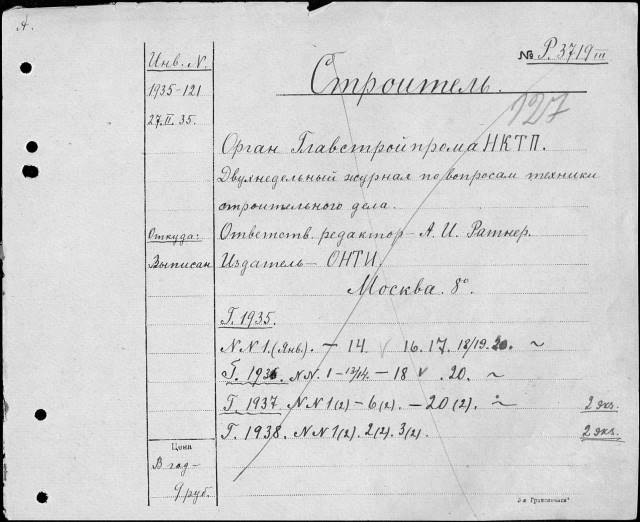 А.
Инв. N.
1935-121
27.II.35.
Откуда:
Выписан
Цена
В год-
9 руб.
№ Р.3719 III
Строитель.
127
Орган Главстройпрома НКТП.
Двухнедельный журнал по вопросам техники
строительного дела.
Ответств. редактор – А. И. Ратнер.
Издатель – ОНТИ.
Москва. 8°.
Г. 1935.
NN 1.(Янв). – 14. v 16. 17. 18/19. 20. ~
Г. 1936. NN. 1 – 13/14. – 18 v. 20. ~
Г. 1937. NN 1(2) – 6(2). – 20(2). ~ 2 экз.
Г. 1938. NN 1(2). 2(2). 3(2). 2 экз.